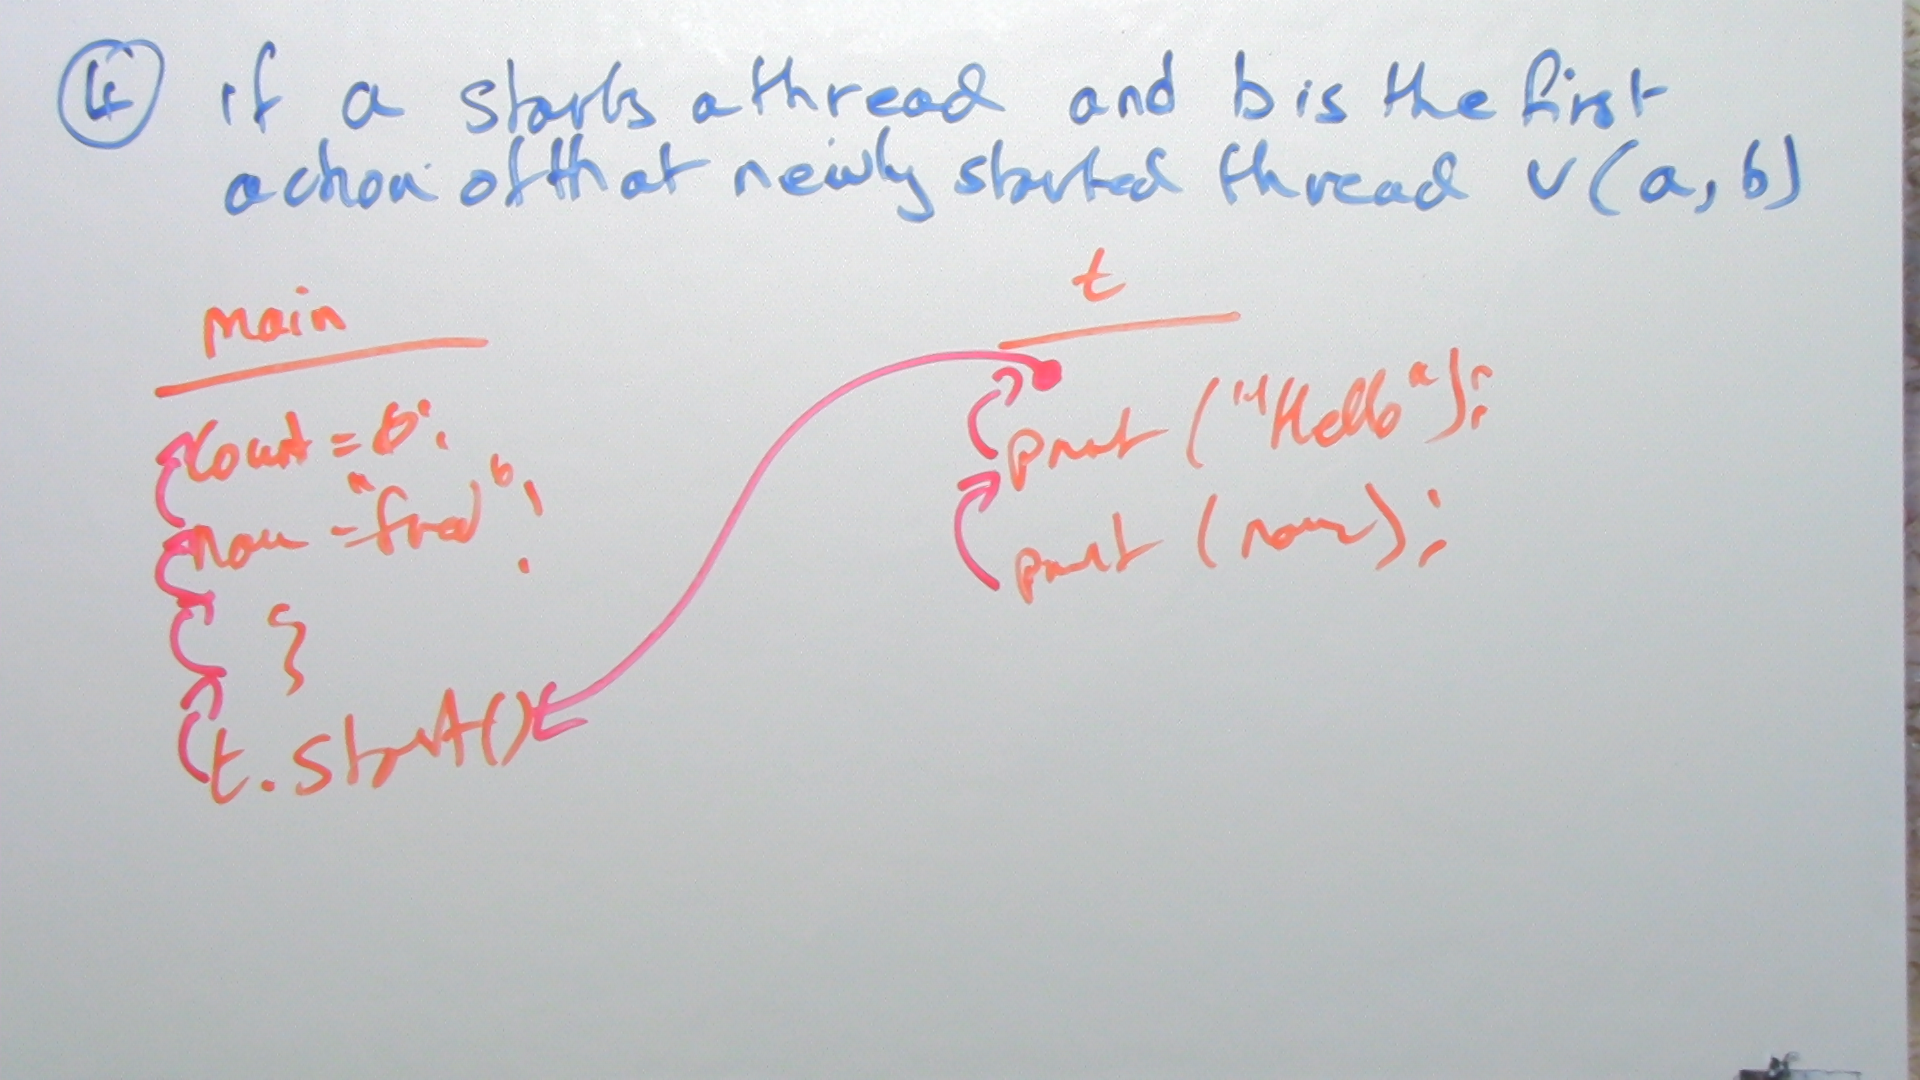 ④ if a starts a thread and b is the first
action of that newly started thread v(a, b)
main
count = 0;
name = "fred";
t.start()
t
print ("Hello");
print (name);